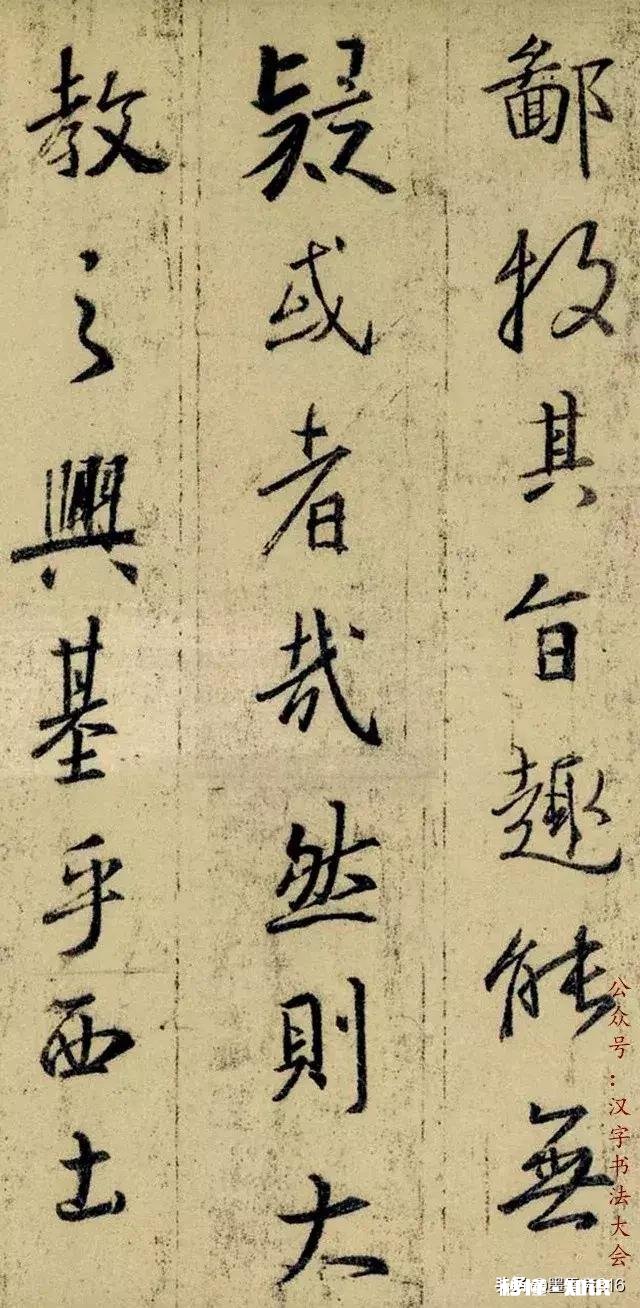 鄙投其旨趣能無
疑或者哉然則大
教之興基乎西土
公众号:汉字书法大会